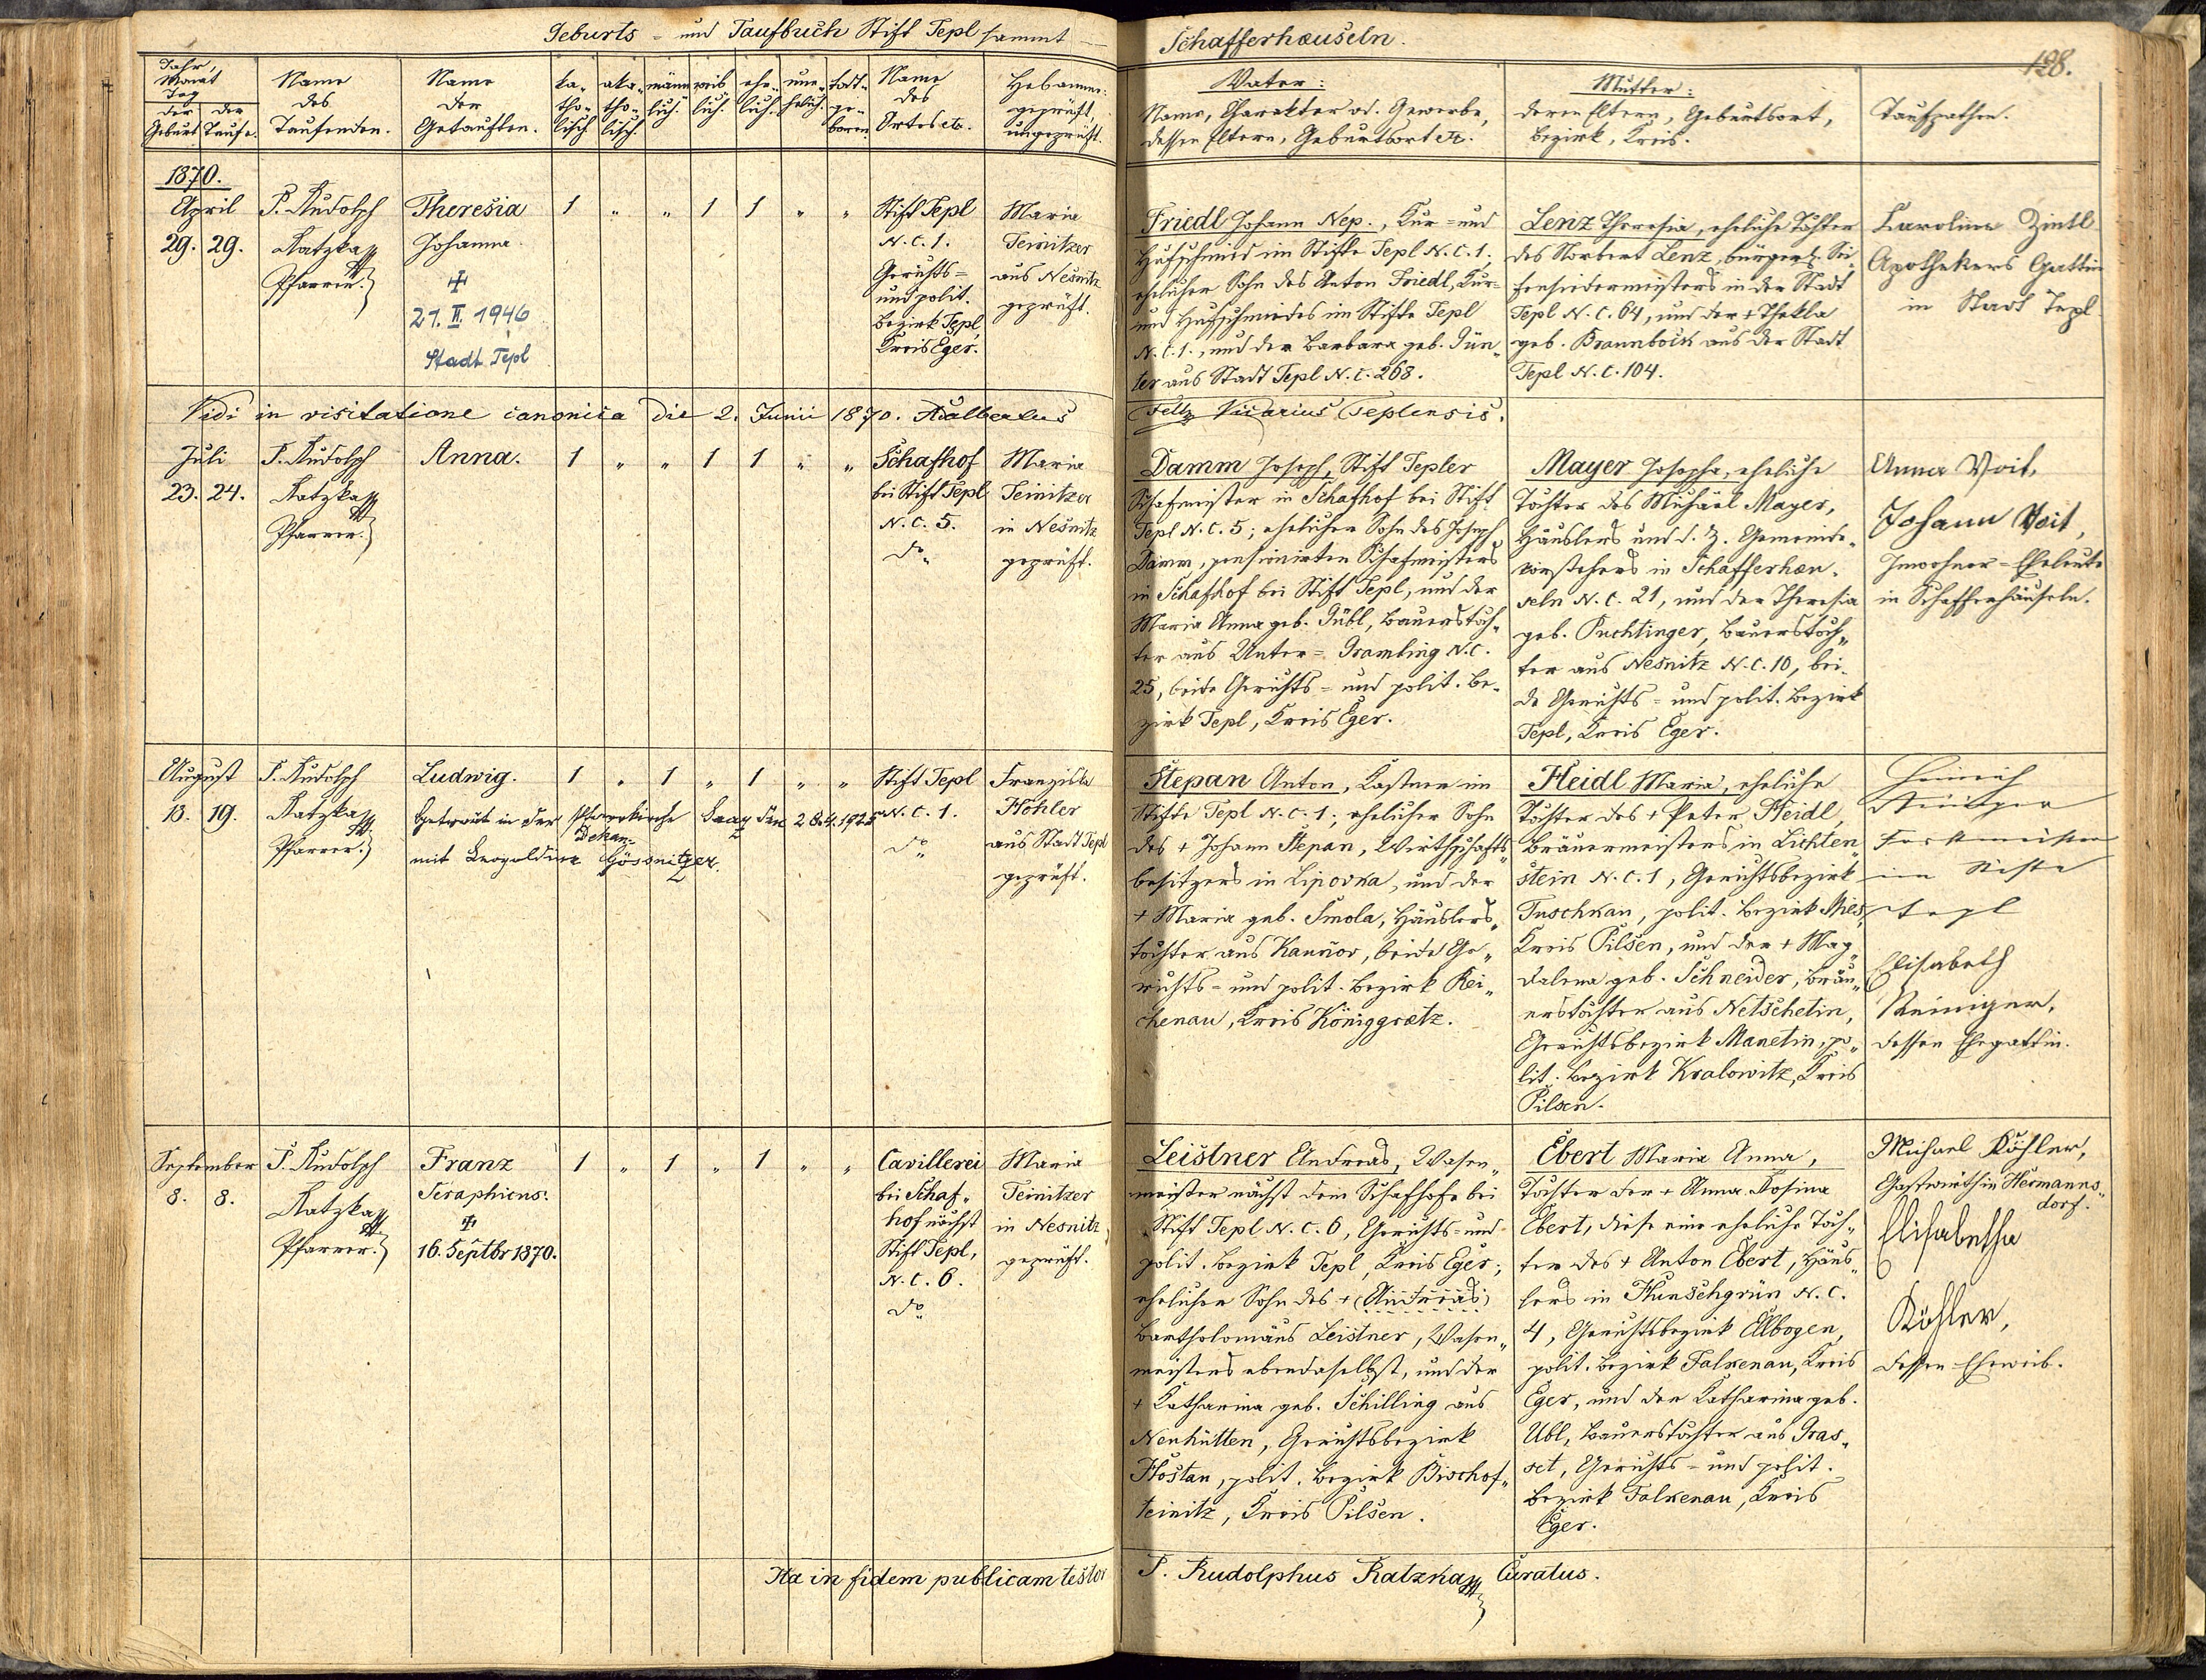 Geburts- und Taufbuch Stift Tepl sammt
Schafferhæuseln.
128.
Jahr,
Monat
Tag
der Geburt
der Taufe.
Name
des
Taufenden.
Name
der
Getauften.
ka-
tho-
lisch
aka-
tho-
lisch
männ
lich.
weib
lich.
ehe-
lich.
une-
helich.
todt-
ge-
boren.
Name
des
Ortes etc.
Hebamme:
geprüft,
ungeprüft.
Vater:
Name, Charakter od. Gewerbe,
dessen Eltern, Geburtsort etc.
Mutter:
deren Eltern, Geburtsort,
Bezirk, Kreis.
Taufpathen.
1870.
April
29. 29.
P. Rudolph
Ratzka
Pfarrer.
Theresia
Johanna.
21. II. 1946
Stadt Tepl
1 " " 1 1 " "
Stift Tepl
N. C. 1.
Gerichts-
und polit.
Bezirk Tepl
Kreis Eger.
Maria
Teinitzer
aus Nesnitz
geprüft.
Friedl Johann Nep., Kur- und
Hufschmied im Stifte Tepl N. C. 1.;
ehelicher Sohn des Anton Friedl, Kur-
und Hufschmiedes im Stifte Tepl
N. C. 1., und der Barbara geb. Gün-
ter aus Stadt Tepl N. C. 268.
Lenz Theresia, eheliche Tochter
des Norbert Lenz, bürgerl. Sei-
fensiedermeisters in der Stadt
Tepl N. C. 64, und der + Thekla
geb. Braunbock aus der Stadt
Tepl N. C. 104.
Karolina Zintl
Apothekers Gattin
in Stadt Tepl.
Vidi in visitatione canonica die 2. Junii 1870. Adalbertus
Vicarius Teplensis.
Juli
23. 24.
P. Rudolph
Ratzka
Pfarrer.
Anna.
1 " " 1 1 " "
Schafhof
bei Stift Tepl
N. C. 5.
do
Maria
Teinitzer
in Nesnitz
geprüft.
Damm Joseph, Stift Tepler
Schafmeister in Schafhof bei Stift
Tepl N. C. 5; ehelicher Sohn des Joseph
Damm, pensionirten Schafmeisters
in Schafhof bei Stift Tepl, und der
Maria Anna geb. Gübl, Bauerstoch-
ter aus Unter-Gramling N. C.
25, beide Gerichts- und polit. Be-
zirk Tepl, Kreis Eger.
Mayer Josepha, eheliche
Tochter des Michael Mayer,
Häuslers und d. Z. Gemeinde-
vorstehers in Schafferhæu-
seln N. C. 21, und der Theresia
geb. Puchtinger, Bauerstoch-
ter aus Nesnitz N. C. 10, bei-
de Gerichts- und polit. Bezirk
Tepl, Kreis Eger.
Anna Voit,
Johann Voit,
Inwohner-Eheleute
in Schafferhäuseln.
August
13. 19.
P. Rudolph
Ratzka
Pfarrer.
Ludwig.
Getraut in der Pfarrkirche Saaz den 28.4.1925
Dekan-
mit Leopoldine Gössnitzer.
1 " 1 " 1 " "
Stift Tepl
N. C. 1.
do
Franziska
Höhler
aus Stadt Tepl
geprüft.
Stepan Anton, Kastner im
Stifte Tepl N. C. 1; ehelicher Sohn
des + Johann Stepan, Wirthschafts-
besitzers in Lipovka, und der
+ Maria geb. Smola, Häuslers-
tochter aus Kaunov, beide Ge-
richts- und polit. Bezirk Rei-
chenau, Kreis Königgrætz.
Heidl Maria, eheliche
Tochter des + Peter Heidl,
Bräuermeisters in Lichten-
stein N. C. 1, Gerichtsbezirk
Tuschkau, polit. Bezirk Mies,
Kreis Pilsen, und der + Mag-
dalena geb. Schneider, Bräu-
erstochter aus Netschetin,
Gerichtsbezirk Manetin, po-
lit. Bezirk Kralowitz, Kreis
Pilsen.
Heinrich
Reiniger
Forstmeister
im Stifte
Tepl
Elisabeth
Reiniger,
dessen Ehegattin.
September
8. 8.
P. Rudolph
Ratzka
Pfarrer.
Franz
Seraphicus.
16. Septbr 1870.
1 " 1 " 1 " "
Cavillerei
bei Schaf-
hof nächst
Stift Tepl,
N. C. 6.
do
Maria
Teinitzer
in Nesnitz,
geprüft.
Leistner Andreas, Wasen-
meister nächst dem Schafhofe bei
Stift Tepl N. C. 6, Gerichts- und
polit. Bezirk Tepl, Kreis Eger;
ehelicher Sohn des + (Andreas)
Bartholomäus Leistner, Wasen-
meisters ebendaselbst, und der
+ Katharina geb. Schilling aus
Neuhütten, Gerichtsbezirk
Hostau, polit. Bezirk Bischof-
teinitz, Kreis Pilsen.
Ebert Maria Anna,
Tochter der + Anna Rosina
Ebert, diese eine eheliche Toch-
ter des + Anton Ebert, Häus-
lers in Kunschgrün N. C.
4, Gerichtsbezirk Ellbogen,
polit. Bezirk Falkenau, Kreis
Eger, und der Katharina geb.
Ubl, Bauerstochter aus Gras-
set, Gerichts- und polit.
Bezirk Falkenau, Kreis
Eger.
Michael Köhler,
Gastwirth in Hermanns-
dorf.
Elisabetha
Köhler,
dessen Eheweib.
Ita in fidem publicam testor P. Rudolphus Ratzka Curatus.